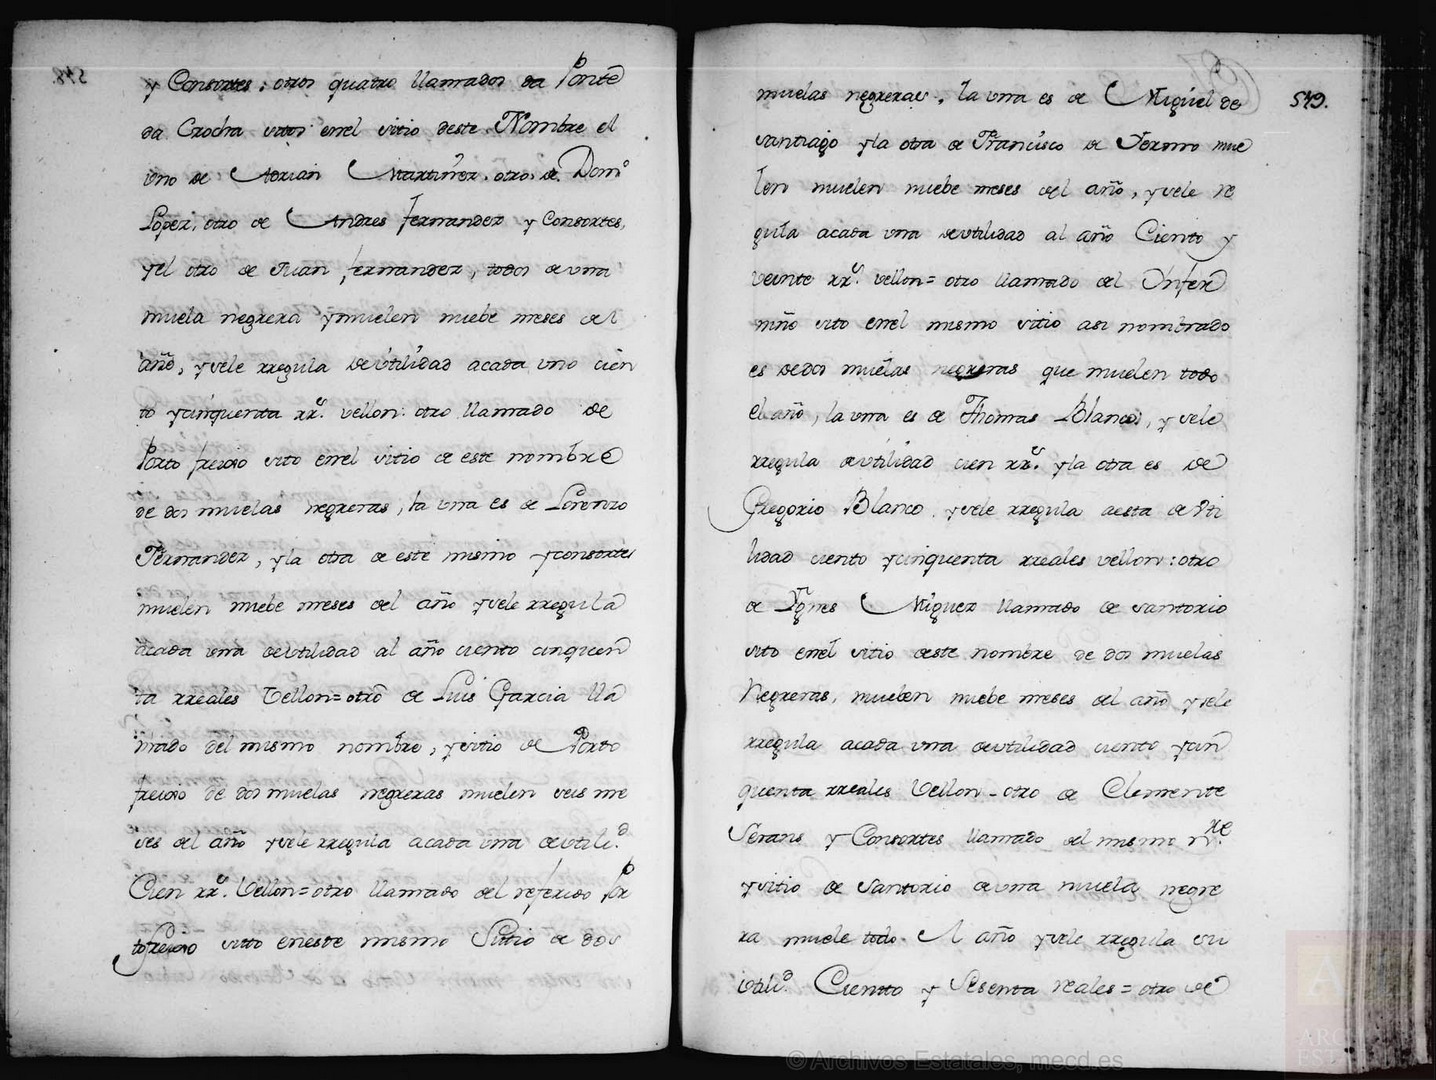 y Consortes; otros quatro llamados da Ponte
da Crocha sitos enel sitio deste Nombre el
uno de Adrian Martinez. otro. de Dom.º
Lopez, otro de Andres fernandez y Consortes,
yel otro de Juan fernandez, todos de una
muela negrera ymuelen nuebe meses del
año, y sele rregula de utilidad acada uno cien
to ycinquenta rr.s vellon: otro llamado de
Porto freixo sito enel sitio de este nombre
de dos muelas negreras, la una es de Lorenzo
Fernandez, y la otra de este mismo yconsortes
muelen nuebe meses del año ysele rregula
acada una deutilidad al año ciento cinquen
ta rreales Vellon= otro de Luis Garcia lla
mado del mismo nombre, ysitio de Porto
freixo de dos muelas negreras muelen seis me
ses del año ysele rregula acada una deutili.d
Cien rr.s Vellon= otro llamado del referido Por
tofreixo sitto eneste mismo Sittio de dos
549.
muelas negreras, la una es de Miguel de
santiago yla otra de Francisco de Fermo mue
len muelen nuebe meses del año, y sele re
gula acada una deutilidad al año Ciento y
veinte rr.s vellon= otro llamado del Ynfer
niño sito enel mismo sitio asi nombrado
es dedos muelas negreras que muelen todo
el año, la una es de Thomas Blanco, y sele
rregula deutilidad cien rr.s yla otra es de
Gregorio Blanco, ysele rregula aesta de Uti
lidad ciento ycinquenta rreales vellon: otro
de Ygnes Miguez llamado de santorio
sito enel sitio deste nombre de dos muelas
Negreras, muelen nuebe meses del año ysele
rregula acada una deutilidad ciento ycin
quenta rreales Vellon= otro de Clemente
Serans y Consortes llamado del mismo n.re
ysitio de Santorio deuna muela negre
ra muele todo. el año ysele rregula su
utili.d Ciento y Sesenta reales= otro de
© Archivos Estatales, mecd.es